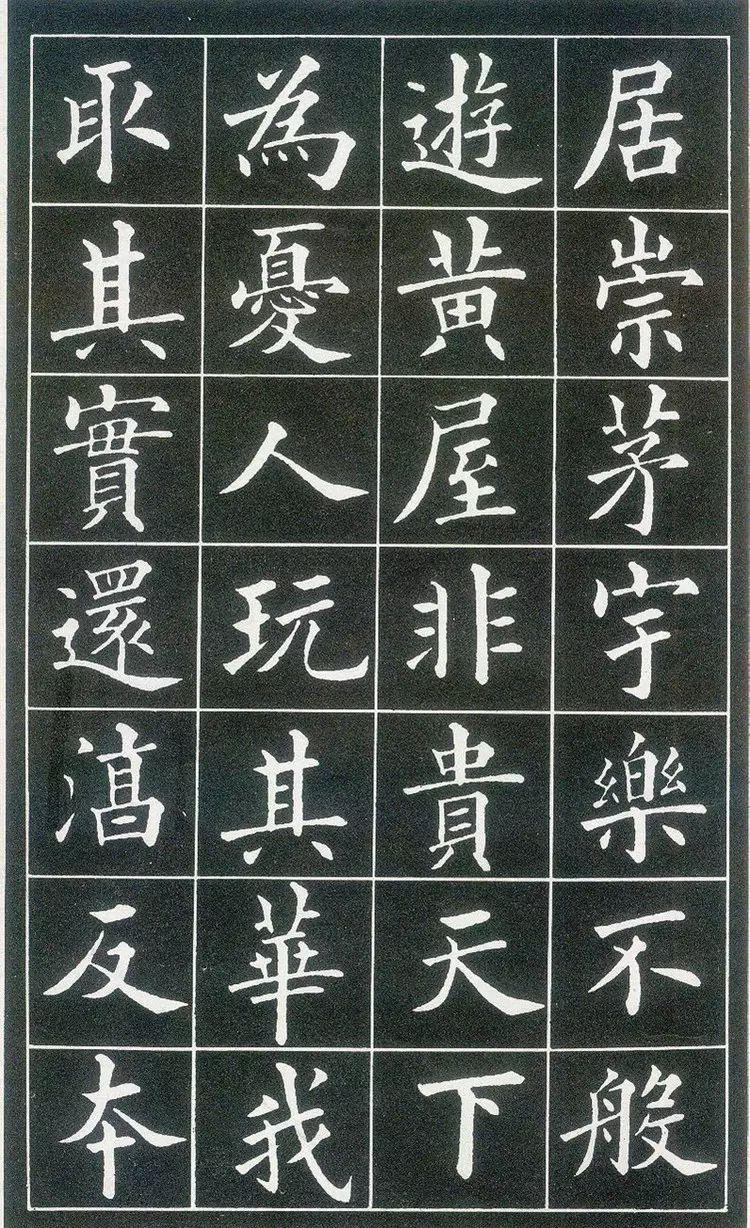 居崇茅宇樂不般
遊黃屋非貴天下
為憂人玩其華我
取其實還湻反本